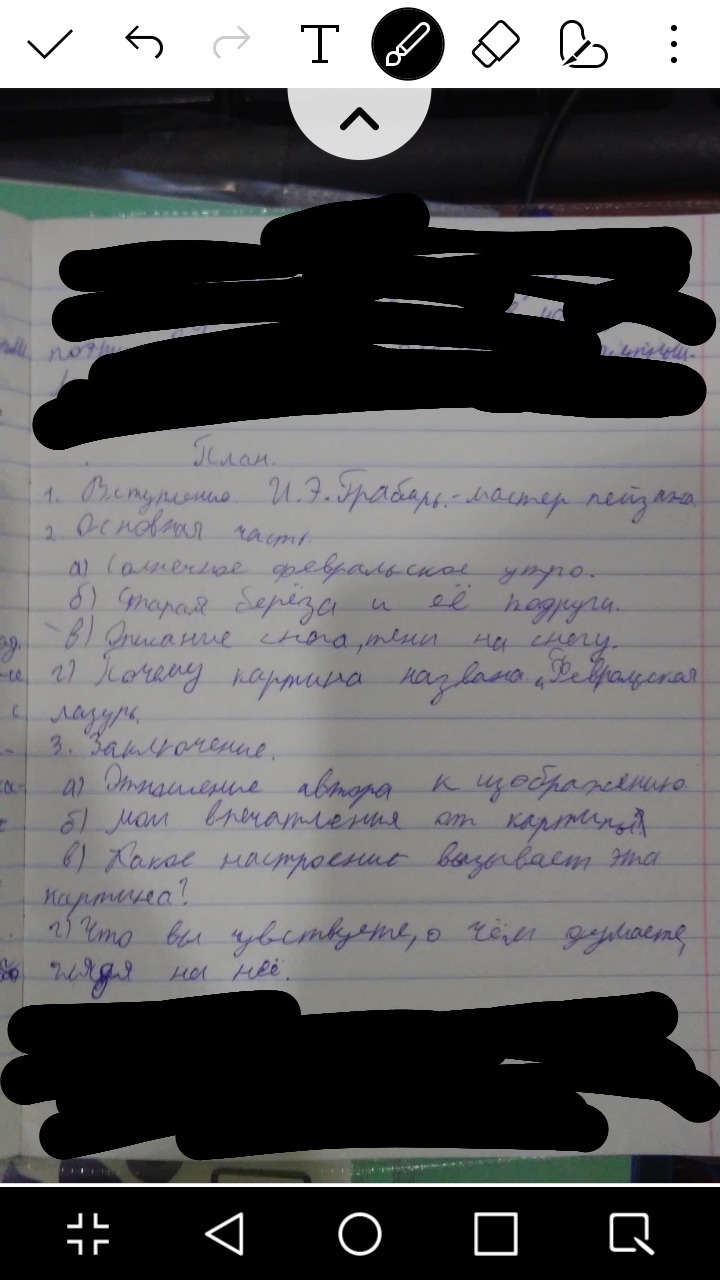 T
План.
1. Вступление И.Э.Грабарь.-мастер пейзажа
2. Основная часть.
а) Солнечное февральское утро.
б) Старая берёза и её подруги.
в) Описание снега, тени на снегу.
г) Почему картина названа „Февральская
лазурь.
3. Заключение.
а) Отношение автора к изображению
б) мои впечатления от картины
в) Какое настроение вызывает эта
картина?
г) Что вы чувствуете, о чём думаете,
глядя на неё.